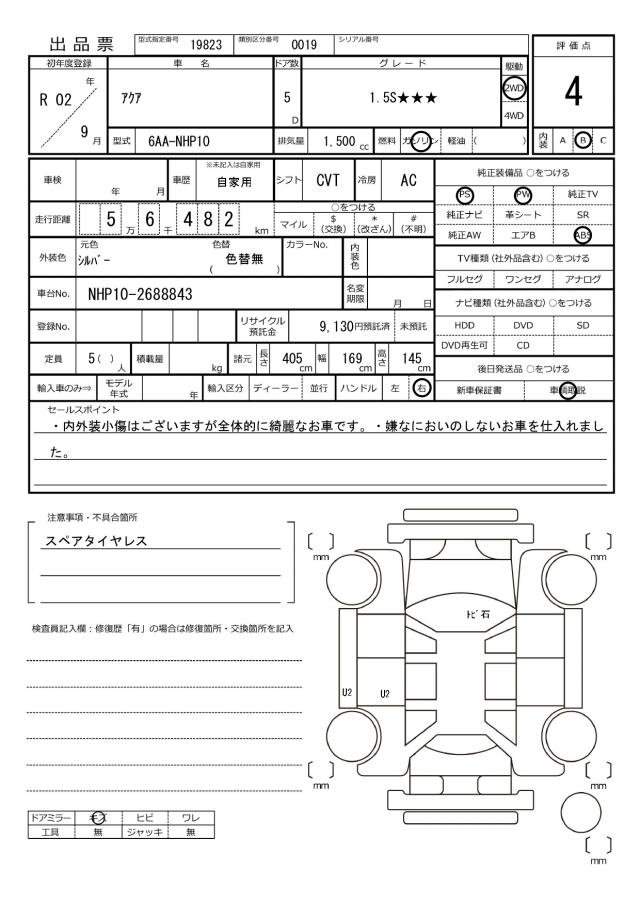 出品票 型式指定番号 19823 類別区分番号 0019 シリアル番号
評価点
4
初年度登録 車名 ドア数 グレード 駆動
R 02 年 9 月
アクア 5 D 1.5S★★★ 2WD 4WD
型式 6AA-NHP10 排気量 1,500 cc 燃料 ガソリン 軽油 ( )
内装 A B C
車検 年 月 車歴 ※未記入は自家用 自家用 シフト CVT 冷房 AC
走行距離 5 6 4 8 2 万 千 km
○をつける
マイル $(交換) *(改ざん) #(不明)
外装色 元色 シルバー 色替 色替無 ( ) カラーNo. 内装色
車台No. NHP10-2688843 名変期限 月 日
登録No. リサイクル預託金 9,130円預託済 未預託
定員 5( )人 積載量 kg 諸元 長さ 405cm 幅 169cm 高さ 145cm
輸入車のみ⇒ モデル年式 年 輸入区分 ディーラー 並行 ハンドル 左 右
純正装備品 ○をつける
PS PW 純正TV
純正ナビ 革シート SR
純正AW エアB ABS
TV種類(社外品含む)○をつける
フルセグ ワンセグ アナログ
ナビ種類(社外品含む)○をつける
HDD DVD SD
DVD再生可 CD
後日発送品 ○をつける
新車保証書 車輌取説
セールスポイント
・内外装小傷はございますが全体的に綺麗なお車です。・嫌なにおいのしないお車を仕入れまし
た。
注意事項・不具合箇所
スペアタイヤレス
検査員記入欄：修復歴「有」の場合は修復箇所・交換箇所を記入
〔 〕mm 〔 〕mm
トビ石
U2 U2
〔 〕mm 〔 〕mm
〔 〕mm
ドアミラー キズ ヒビ ワレ
工具 無 ジャッキ 無